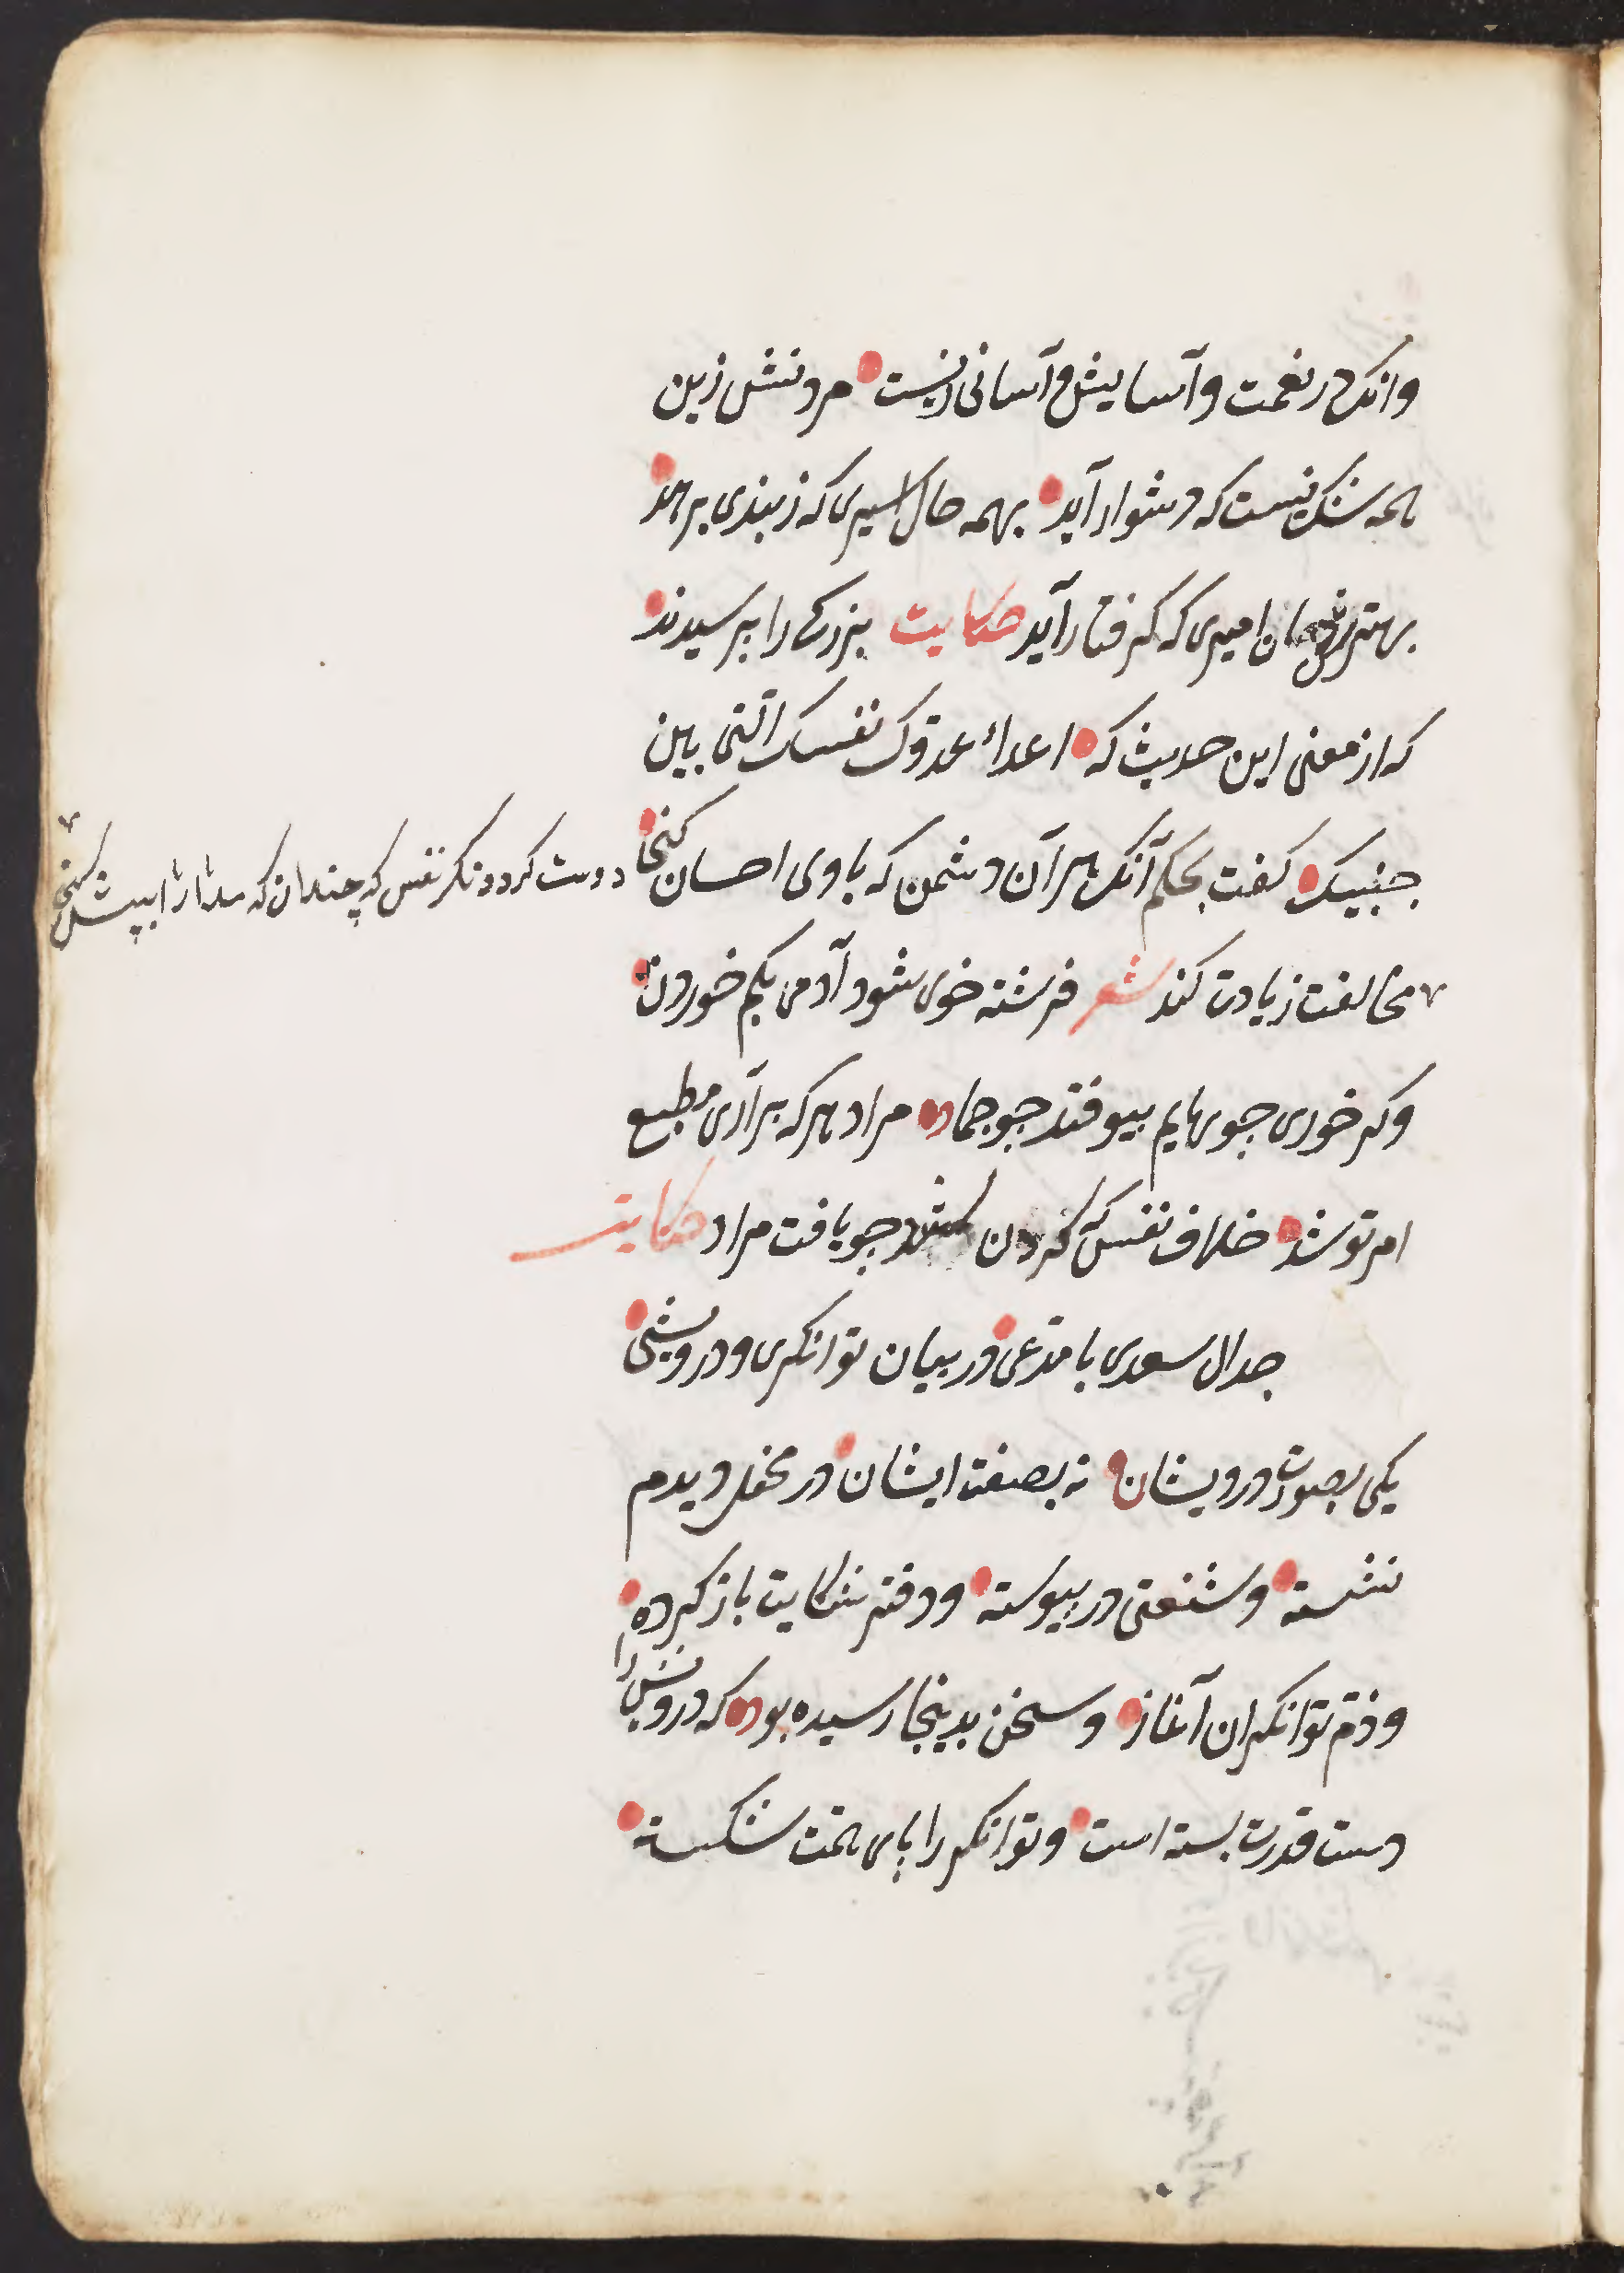 وانک در نعمت و آسایش و آسانی زیست مردنش زین
همه شک نیست که دشوار آید بهمه حال اسیری که ز بندی برهد
بهتر از حال امیری که گرفتار آید حکایت بزرگی را پرسیدند
که از معنی این حدیث که اعداء عدوّک نفسک الّتی بین
جنبیک گفت بحکم آنک هر آن دشمن که با وی احسان کنی
دوست کردد مکر نفس که چندان که مدارا بیش کنی
مخالفت زیادت کند شعر فرشته خوی شود آدمی بکم خوردن
وکر خوری جو بهایم بیوفتد جو جماد مراد هر که برآری مطیع
امر تو شد خلاف نفس که کردن کشد جو یافت مراد حکایت
جدال سعدی با مدّعی در بیان توانکری و درویشی
یکی بصورت درویشان نه بصفت ایشان در محفل دیدم
نشسته و شنعتی در پیوسته و دفتر شکایت باز کرده
و ذمّ توانکران آغاز و سخن بدینجا رسیده بود که درویش را
دست قدرت بسته است و توانکر را پای همّت شکسته